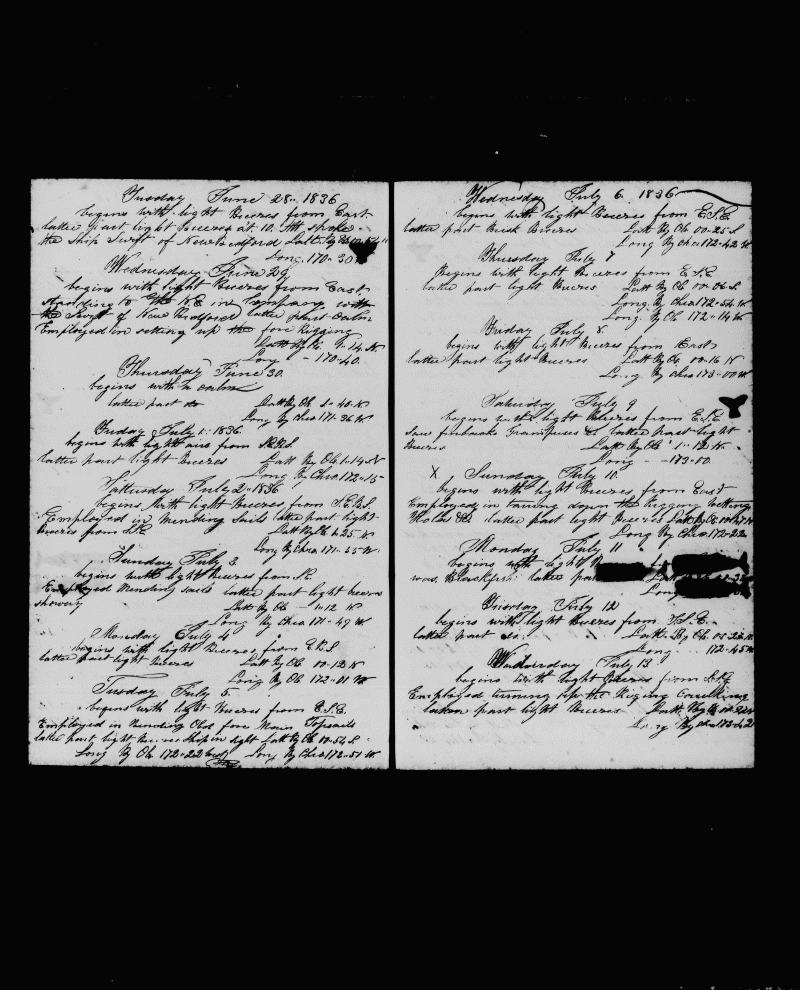 Tuesday June 28.. 1836
begins with light Breezes from East
latter part light Breezes at 10. AM spoke
the Ship Swift of New Bedford Latt by
Long. 170-30
Wednesday June 29
begins with light Breezes from East
Standing to the N.E in Company with
the Swift of New Bedford latter part Calm
Employed in setting up the fore Rigging
Latt By Ob 1-14. N
Long - 170-40.
Thursday June 30.
begins with calm
latter part do Latt By Ob N
Long By Chro 171-36 W
Friday July 1. 1836
begins with light airs from
latter part light Breezes Latt By Ob 1-14 N
Long By Chro 172-15-
Saturday July 2.. 1836
begins with light Breezes from S.E.B.S.
Employed in Mending Sails latter part light
breezes from Latt By Ob 25 N
Long By Chro 171-55 W
Sunday July 3.
begins with light Breezes from
Employed Mending sails latter part light breezes
showery Latt By Ob 12 N
Long By Chro 171-49 W
Monday July 4
begins with light Breezes from E.B.S
latter part light Breezes Latt By Ob 00-12 N
Long By Ob 172-01 W
Tuesday July 5.
begins with light Breezes from E.S.E.
Employed in Mending Old fore Main Topsails
latter part light Breezes Ship in sight Latt By Ob 00-54 S
Long By Ob 172-22 Long By Chro 172-51 W
Wednesday July 6. 1836
begins with light Breezes from E.S.E
latter part Brisk Breezes Latt By Ob 00-25 S
Long By Chro 172-42 W
Thursday July 7
Begins with light Breezes from E.S.E
latter part light Breezes Latt By Ob 00-06 S
Long. By Chro 172-54 W
Long. By Ob 172-14 W
Friday July 8.
begins with light Breezes from East
latter part light Breezes Latt By Ob. 00-16 N
Long By Chro 173-00 W
Saturday July 9
begins with light Breezes from E.S.E
Saw finbacks Grampuses &c latter part light
Breezes Latt By Ob 1-12 N.
Long - -173-00.
X Sunday July 10.
begins with light Breezes from East
Employed in taring down the rigging
latter part light Breezes Latt By Ob
Long By Chro 172-22
Monday July 11
begins with light
saw Blackfish latter par
Long
Tuesday July 12
begins with light Breezes from
latter part do. Latt. By Ob. 00-
Long 172-45 W
Wednesday July 13
begins with light Breezes from
Employed turning up the Riging
latter part light Breezes Latt By Ob 00-22
Long By Chro 173-42